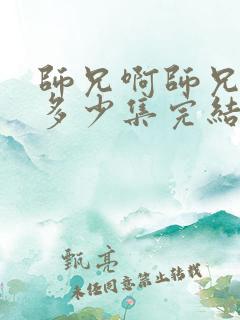 師兄啊師兄
多少集完結
甄亮
未經同意禁止轉載